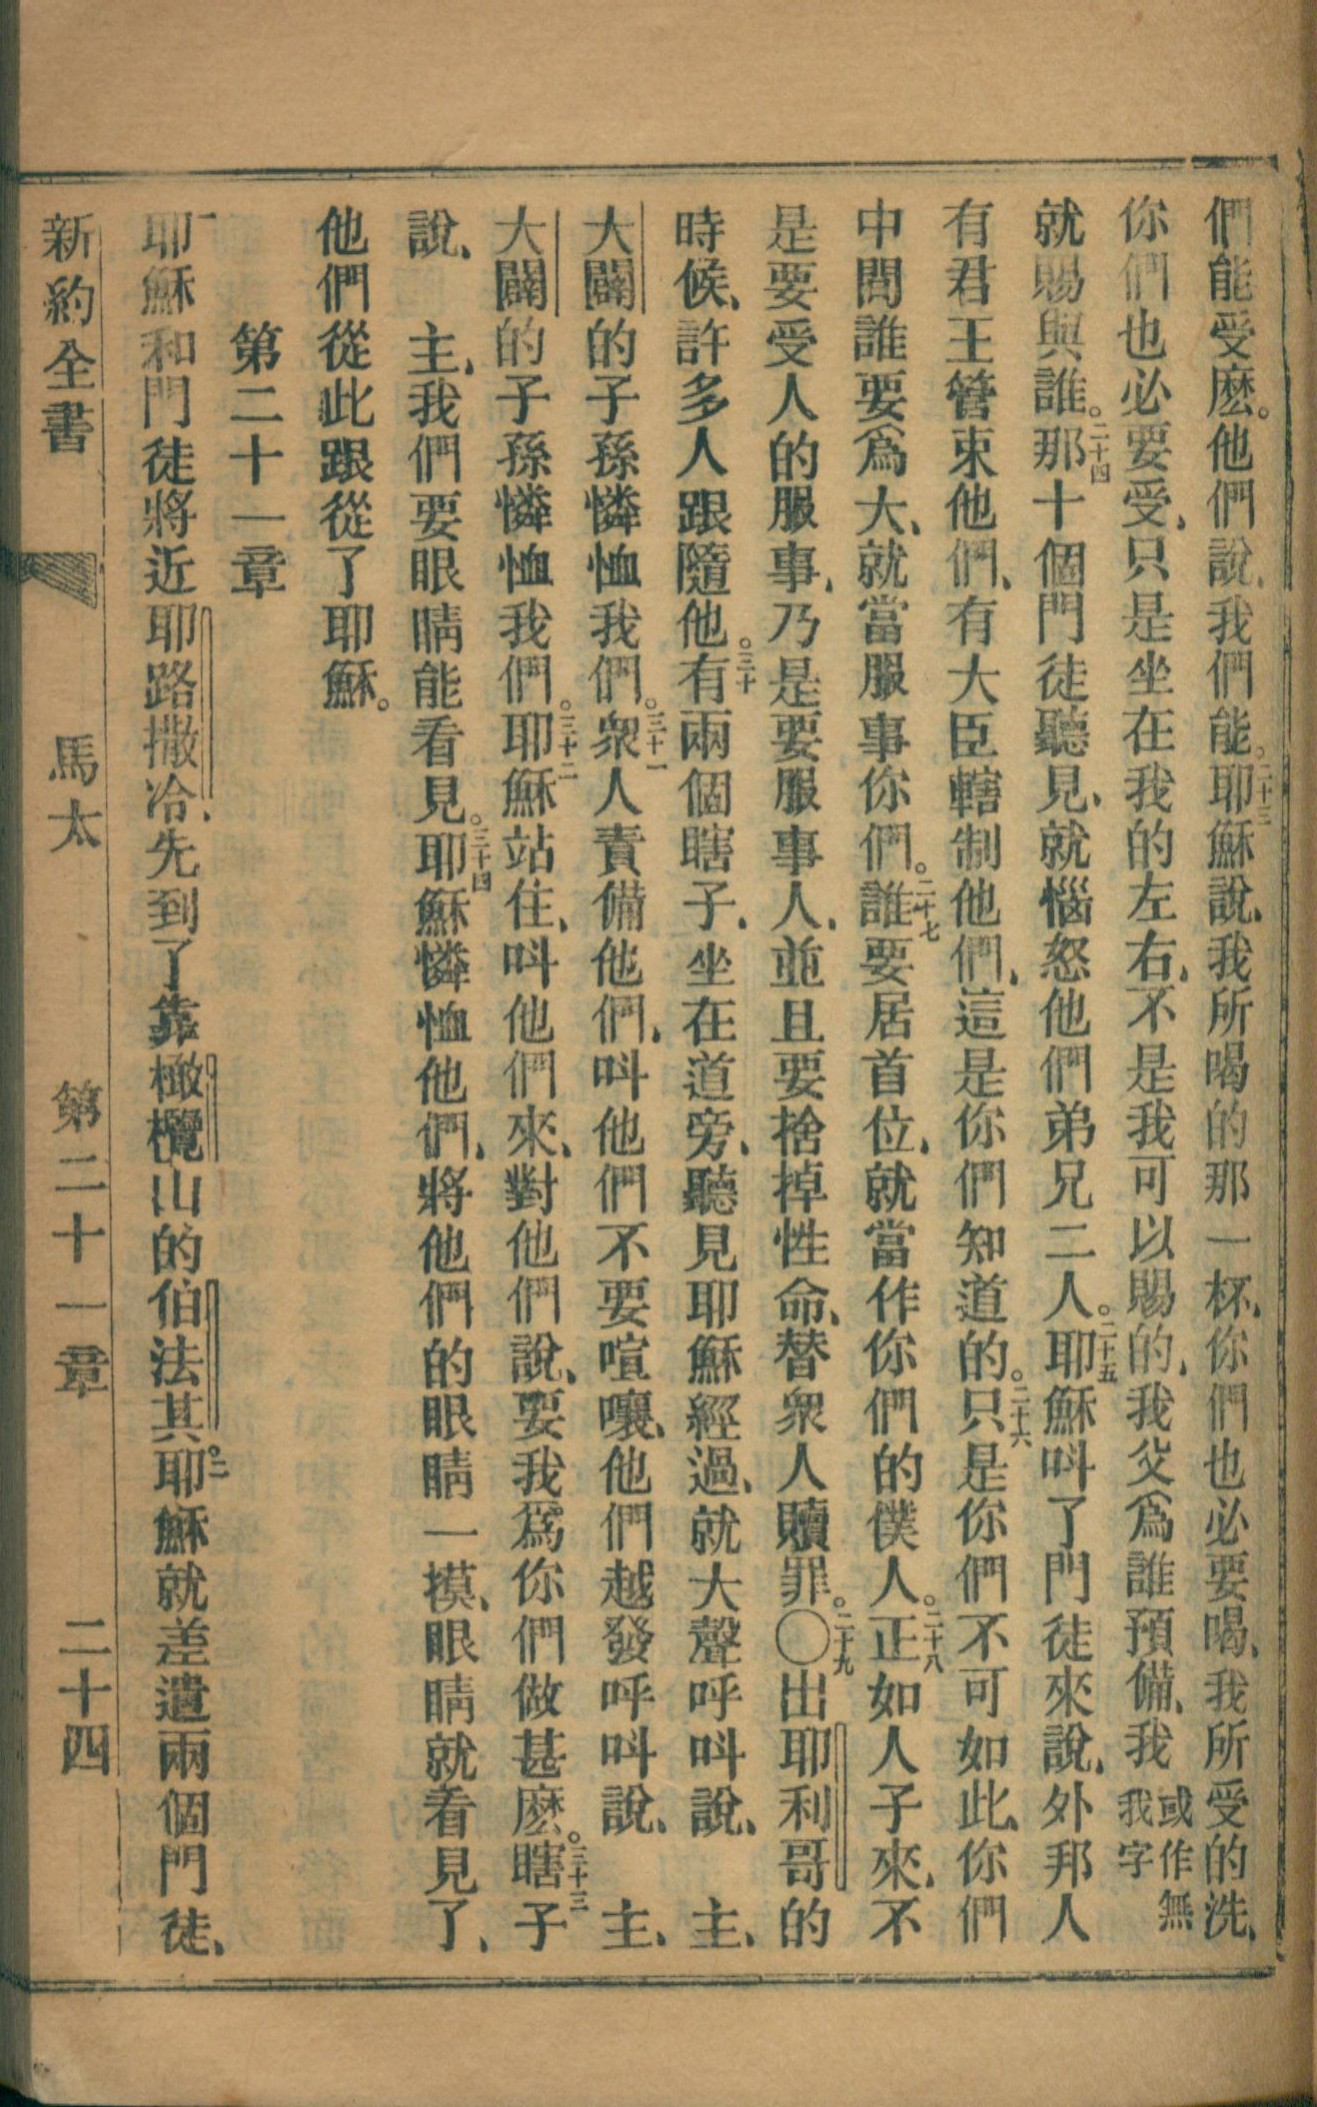 們能受麽。他們說、我們能。二十三耶穌說、我所喝的那一杯、你們也必要喝、我所受的洗、
你們也必要受、只是坐在我的左右、不是我可以賜的、我父爲誰預備、我或作無我字
就賜與誰。二十四那十個門徒聽見、就惱怒他們弟兄二人。二十五耶穌呌了門徒來說、外邦人
有君王管束他們、有大臣轄制他們、這是你們知道的。二十六只是你們不可如此、你們
中間誰要爲大、就當服事你們。二十七誰要居首位、就當作你們的僕人。二十八正如人子來、不
是要受人的服事、乃是要服事人、並且要捨掉性命、替衆人贖罪。二十九〇出耶利哥的
時候、許多人跟隨他。三十有兩個瞎子、坐在道旁、聽見耶穌經過、就大聲呼呌說、　主、
大闢的子孫憐恤我們。三十一衆人責備他們、呌他們不要喧嚷、他們越發呼呌說、　主、
大闢的子孫憐恤我們。三十二耶穌站住、呌他們來、對他們說、要我爲你們做甚麽。三十三瞎子
說、　主、我們要眼睛能看見。三十四耶穌憐恤他們、將他們的眼睛一摸、眼睛就看見了、
他們從此跟從了耶穌。
第二十一章
一耶穌和門徒將近耶路撒冷、先到了靠橄欖山的伯法其。二耶穌就差遣兩個門徒、
新約全書　馬太　第二十一章　二十四